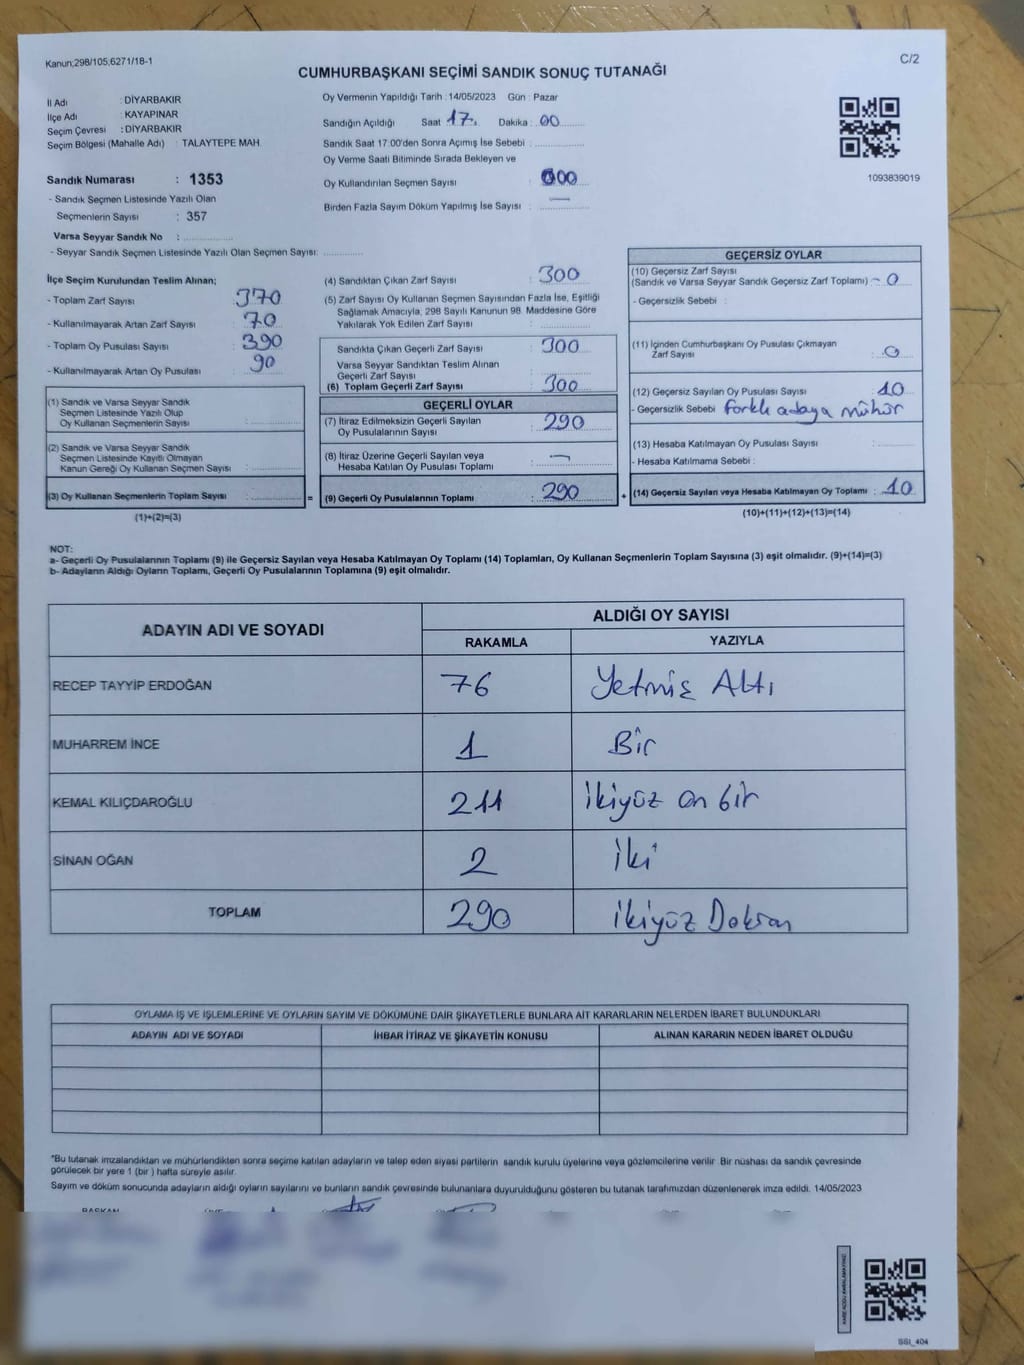 Kanun;298/105;6271/18-1
C/2
CUMHURBAŞKANI SEÇİMİ SANDIK SONUÇ TUTANAĞI
İl Adı : DİYARBAKIR
İlçe Adı : KAYAPINAR
Seçim Çevresi : DİYARBAKIR
Seçim Bölgesi (Mahalle Adı) : TALAYTEPE MAH.
Sandık Numarası : 1353
- Sandık Seçmen Listesinde Yazılı Olan
Seçmenlerin Sayısı : 357
Varsa Seyyar Sandık No :
- Seyyar Sandık Seçmen Listesinde Yazılı Olan Seçmen Sayısı:
Oy Vermenin Yapıldığı Tarih : 14/05/2023 Gün : Pazar
Sandığın Açıldığı Saat 17. Dakika : 00
Sandık Saat 17:00'den Sonra Açımış İse Sebebi :
Oy Verme Saati Bitiminde Sırada Bekleyen ve
Oy Kullandırılan Seçmen Sayısı : 000
Birden Fazla Sayım Döküm Yapılmış İse Sayısı : —
1093839019
İlçe Seçim Kurulundan Teslim Alınan;
- Toplam Zarf Sayısı : 370
- Kullanılmayarak Artan Zarf Sayısı : 70
- Toplam Oy Pusulası Sayısı : 390
- Kullanılmayarak Artan Oy Pusulası : 90
(1) Sandık ve Varsa Seyyar Sandık
Seçmen Listesinde Yazılı Olup
Oy Kullanan Seçmenlerin Sayısı :
(2) Sandık ve Varsa Seyyar Sandık
Seçmen Listesinde Kayıtlı Olmayan
Kanun Gereği Oy Kullanan Seçmen Sayısı :
(3) Oy Kullanan Seçmenlerin Toplam Sayısı :
(1)+(2)=(3)
(4) Sandıktan Çıkan Zarf Sayısı : 300
(5) Zarf Sayısı Oy Kullanan Seçmen Sayısından Fazla İse, Eşitliği
Sağlamak Amacıyla, 298 Sayılı Kanunun 98. Maddesine Göre
Yakılarak Yok Edilen Zarf Sayısı :
Sandıkta Çıkan Geçerli Zarf Sayısı : 300
Varsa Seyyar Sandıktan Teslim Alınan
Geçerli Zarf Sayısı :
(6) Toplam Geçerli Zarf Sayısı : 300
GEÇERLİ OYLAR
(7) İtiraz Edilmeksizin Geçerli Sayılan
Oy Pusulalarının Sayısı : 290
(8) İtiraz Üzerine Geçerli Sayılan veya
Hesaba Katılan Oy Pusulası Toplamı : —
= (9) Geçerli Oy Pusulalarının Toplamı : 290 +
GEÇERSİZ OYLAR
(10) Geçersiz Zarf Sayısı
(Sandık ve Varsa Seyyar Sandık Geçersiz Zarf Toplamı) : 0
- Geçersizlik Sebebi :
(11) İçinden Cumhurbaşkanı Oy Pusulası Çıkmayan
Zarf Sayısı : 0
(12) Geçersiz Sayılan Oy Pusulası Sayısı : 10
- Geçersizlik Sebebi : Farklı adaya mühür
(13) Hesaba Katılmayan Oy Pusulası Sayısı :
- Hesaba Katılmama Sebebi :
(14) Geçersiz Sayılan veya Hesaba Katılmayan Oy Toplamı : 10
(10)+(11)+(12)+(13)=(14)
NOT:
a- Geçerli Oy Pusulalarının Toplamı (9) ile Geçersiz Sayılan veya Hesaba Katılmayan Oy Toplamı (14) Toplamları, Oy Kullanan Seçmenlerin Toplam Sayısına (3) eşit olmalıdır. (9)+(14)=(3)
b- Adayların Aldığı Oyların Toplamı, Geçerli Oy Pusulalarının Toplamına (9) eşit olmalıdır.
ADAYIN ADI VE SOYADI
ALDIĞI OY SAYISI
RAKAMLA YAZIYLA
RECEP TAYYİP ERDOĞAN 76 Yetmiş Altı
MUHARREM İNCE 1 Bir
KEMAL KILIÇDAROĞLU 211 İkiyüz on bir
SİNAN OĞAN 2 İki
TOPLAM 290 İkiyüz Doksan
OYLAMA İŞ VE İŞLEMLERİNE VE OYLARIN SAYIM VE DÖKÜMÜNE DAİR ŞİKAYETLERLE BUNLARA AİT KARARLARIN NELERDEN İBARET BULUNDUKLARI
ADAYIN ADI VE SOYADI İHBAR İTİRAZ VE ŞİKAYETİN KONUSU ALINAN KARARIN NEDEN İBARET OLDUĞU
*Bu tutanak imzalandıktan ve mühürlendikten sonra seçime katılan adayların ve talep eden siyasi partilerin sandık kurulu üyelerine veya gözlemcilerine verilir. Bir nüshası da sandık çevresinde
görülecek bir yere 1 (bir ) hafta süreyle asılır.
Sayım ve döküm sonucunda adayların aldığı oyların sayılarını ve bunların sandık çevresinde bulunanlara duyurulduğunu gösteren bu tutanak tarafımızdan düzenlenerek imza edildi. 14/05/2023
BAŞKAN
SSI_404